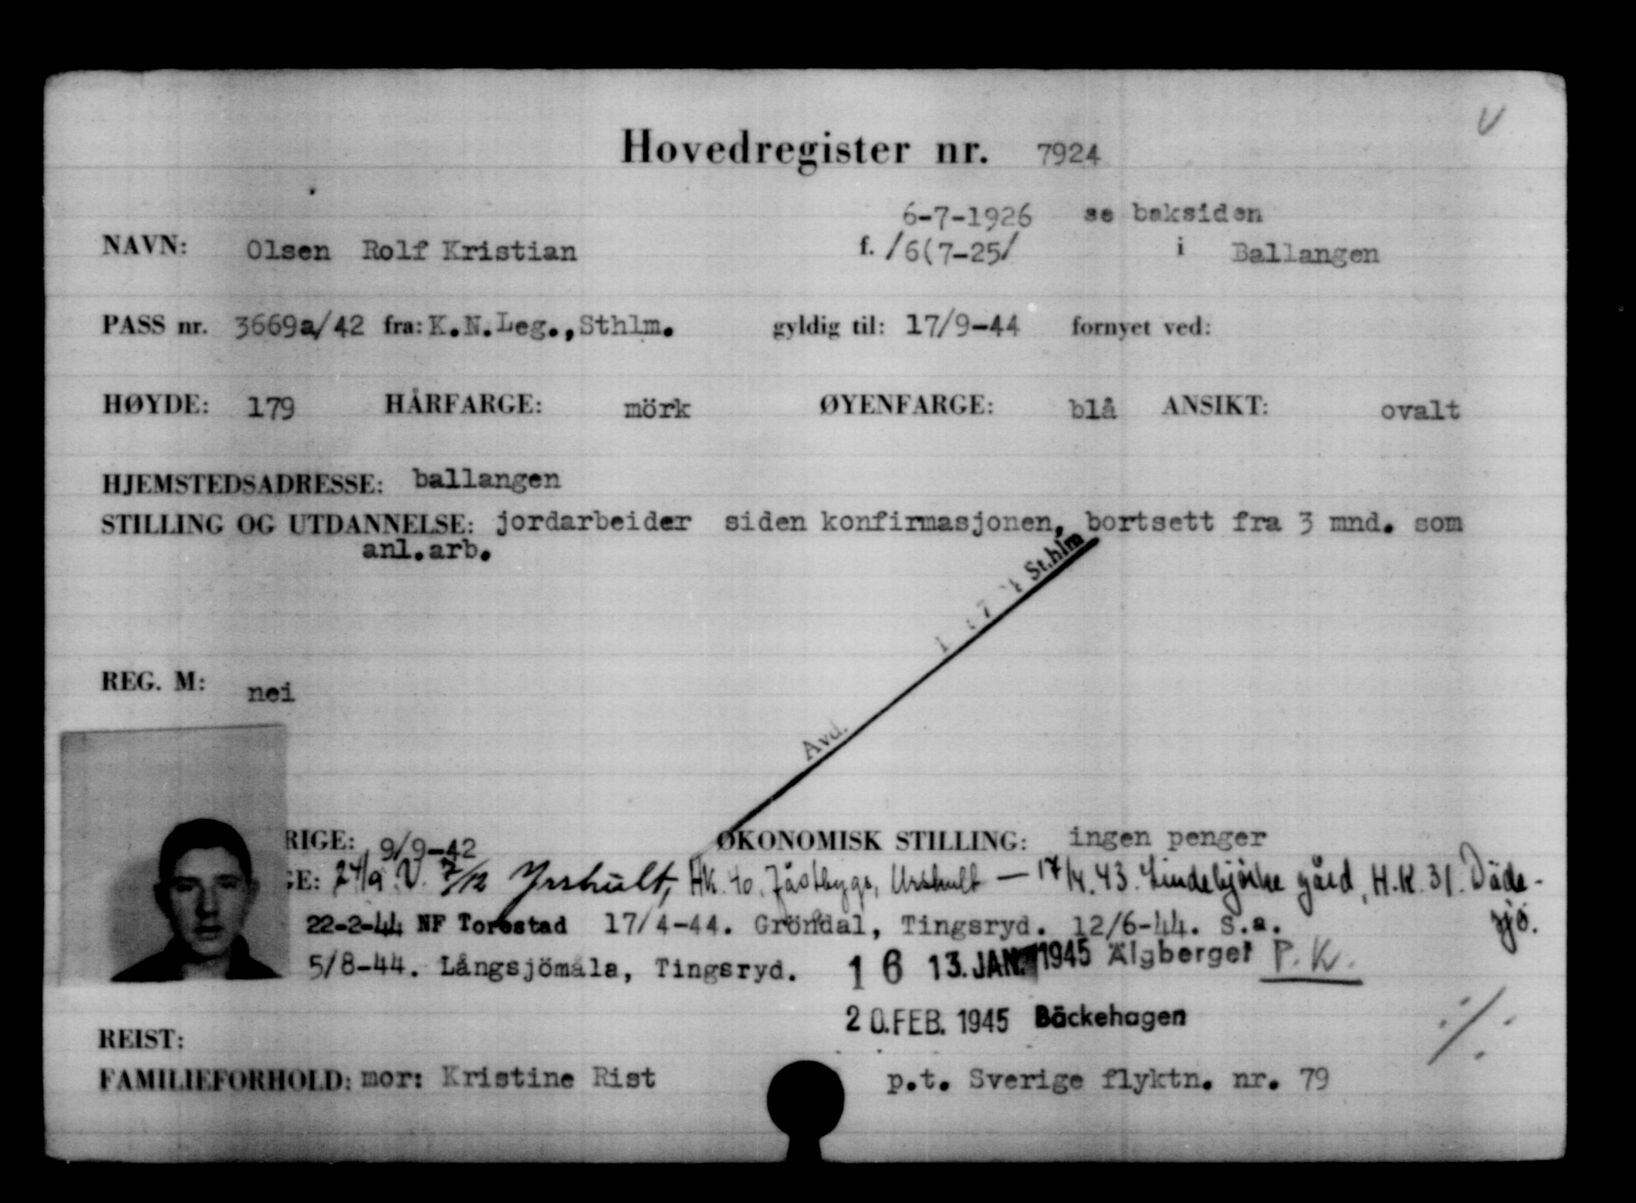 Hovedregister nr. 7924
6-7-1926 se baksiden
NAVN: Olsen Rolf Kristian f. /6(7-25/ i Ballangen
PASS nr. 3669a/42 fra: K.N.Leg.,Sthlm. gyldig til: 17/9-44 fornyet ved:
HØYDE: 179 HÅRFARGE: mörk ØYENFARGE: blå ANSIKT: ovalt
HJEMSTEDSADRESSE: ballangen
STILLING OG UTDANNELSE: jordarbeider siden konfirmasjonen, bortsett fra 3 mnd. som
anl.arb.
St.hlm
Avd.
REG. M: nei
RIGE: 9/9-42 ØKONOMISK STILLING: ingen penger
GE: 24/9 V. 7/12 Yrshult, HK. 40. Urshult — 17/4.43. gård, H.K. 31. Däde-
sjö.
22-2-44 NF Torestad 17/4-44. Gröndal, Tingsryd. 12/6-44. S.a.
5/8-44. Långsjömåla, Tingsryd. 16 13.JAN. 1945 Älgberget P.K.
20.FEB. 1945 Bäckehagen
REIST:
FAMILIEFORHOLD: mor: Kristine Rist p.t. Sverige flyktn. nr. 79